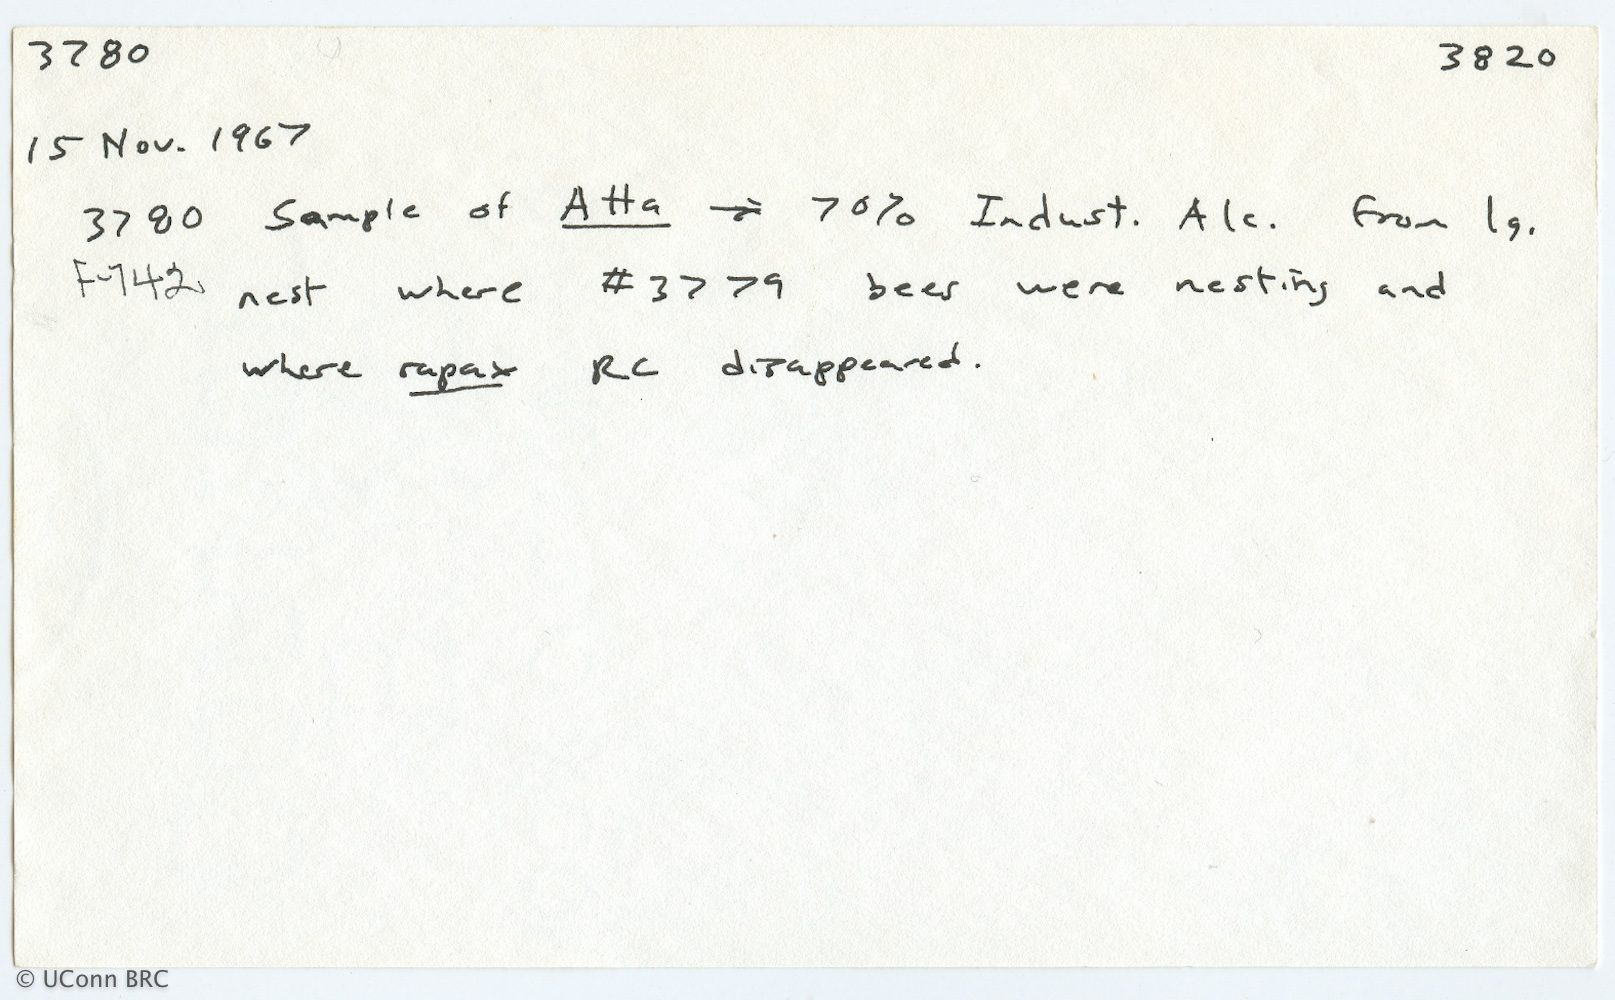 3780 3820
15 Nov. 1967
3780 Sample of Atta → 70% Indust. Alc. from lg.
F-742 nest where #3779 bees were nesting and
where rapax RC disappeared.
© UConn BRC